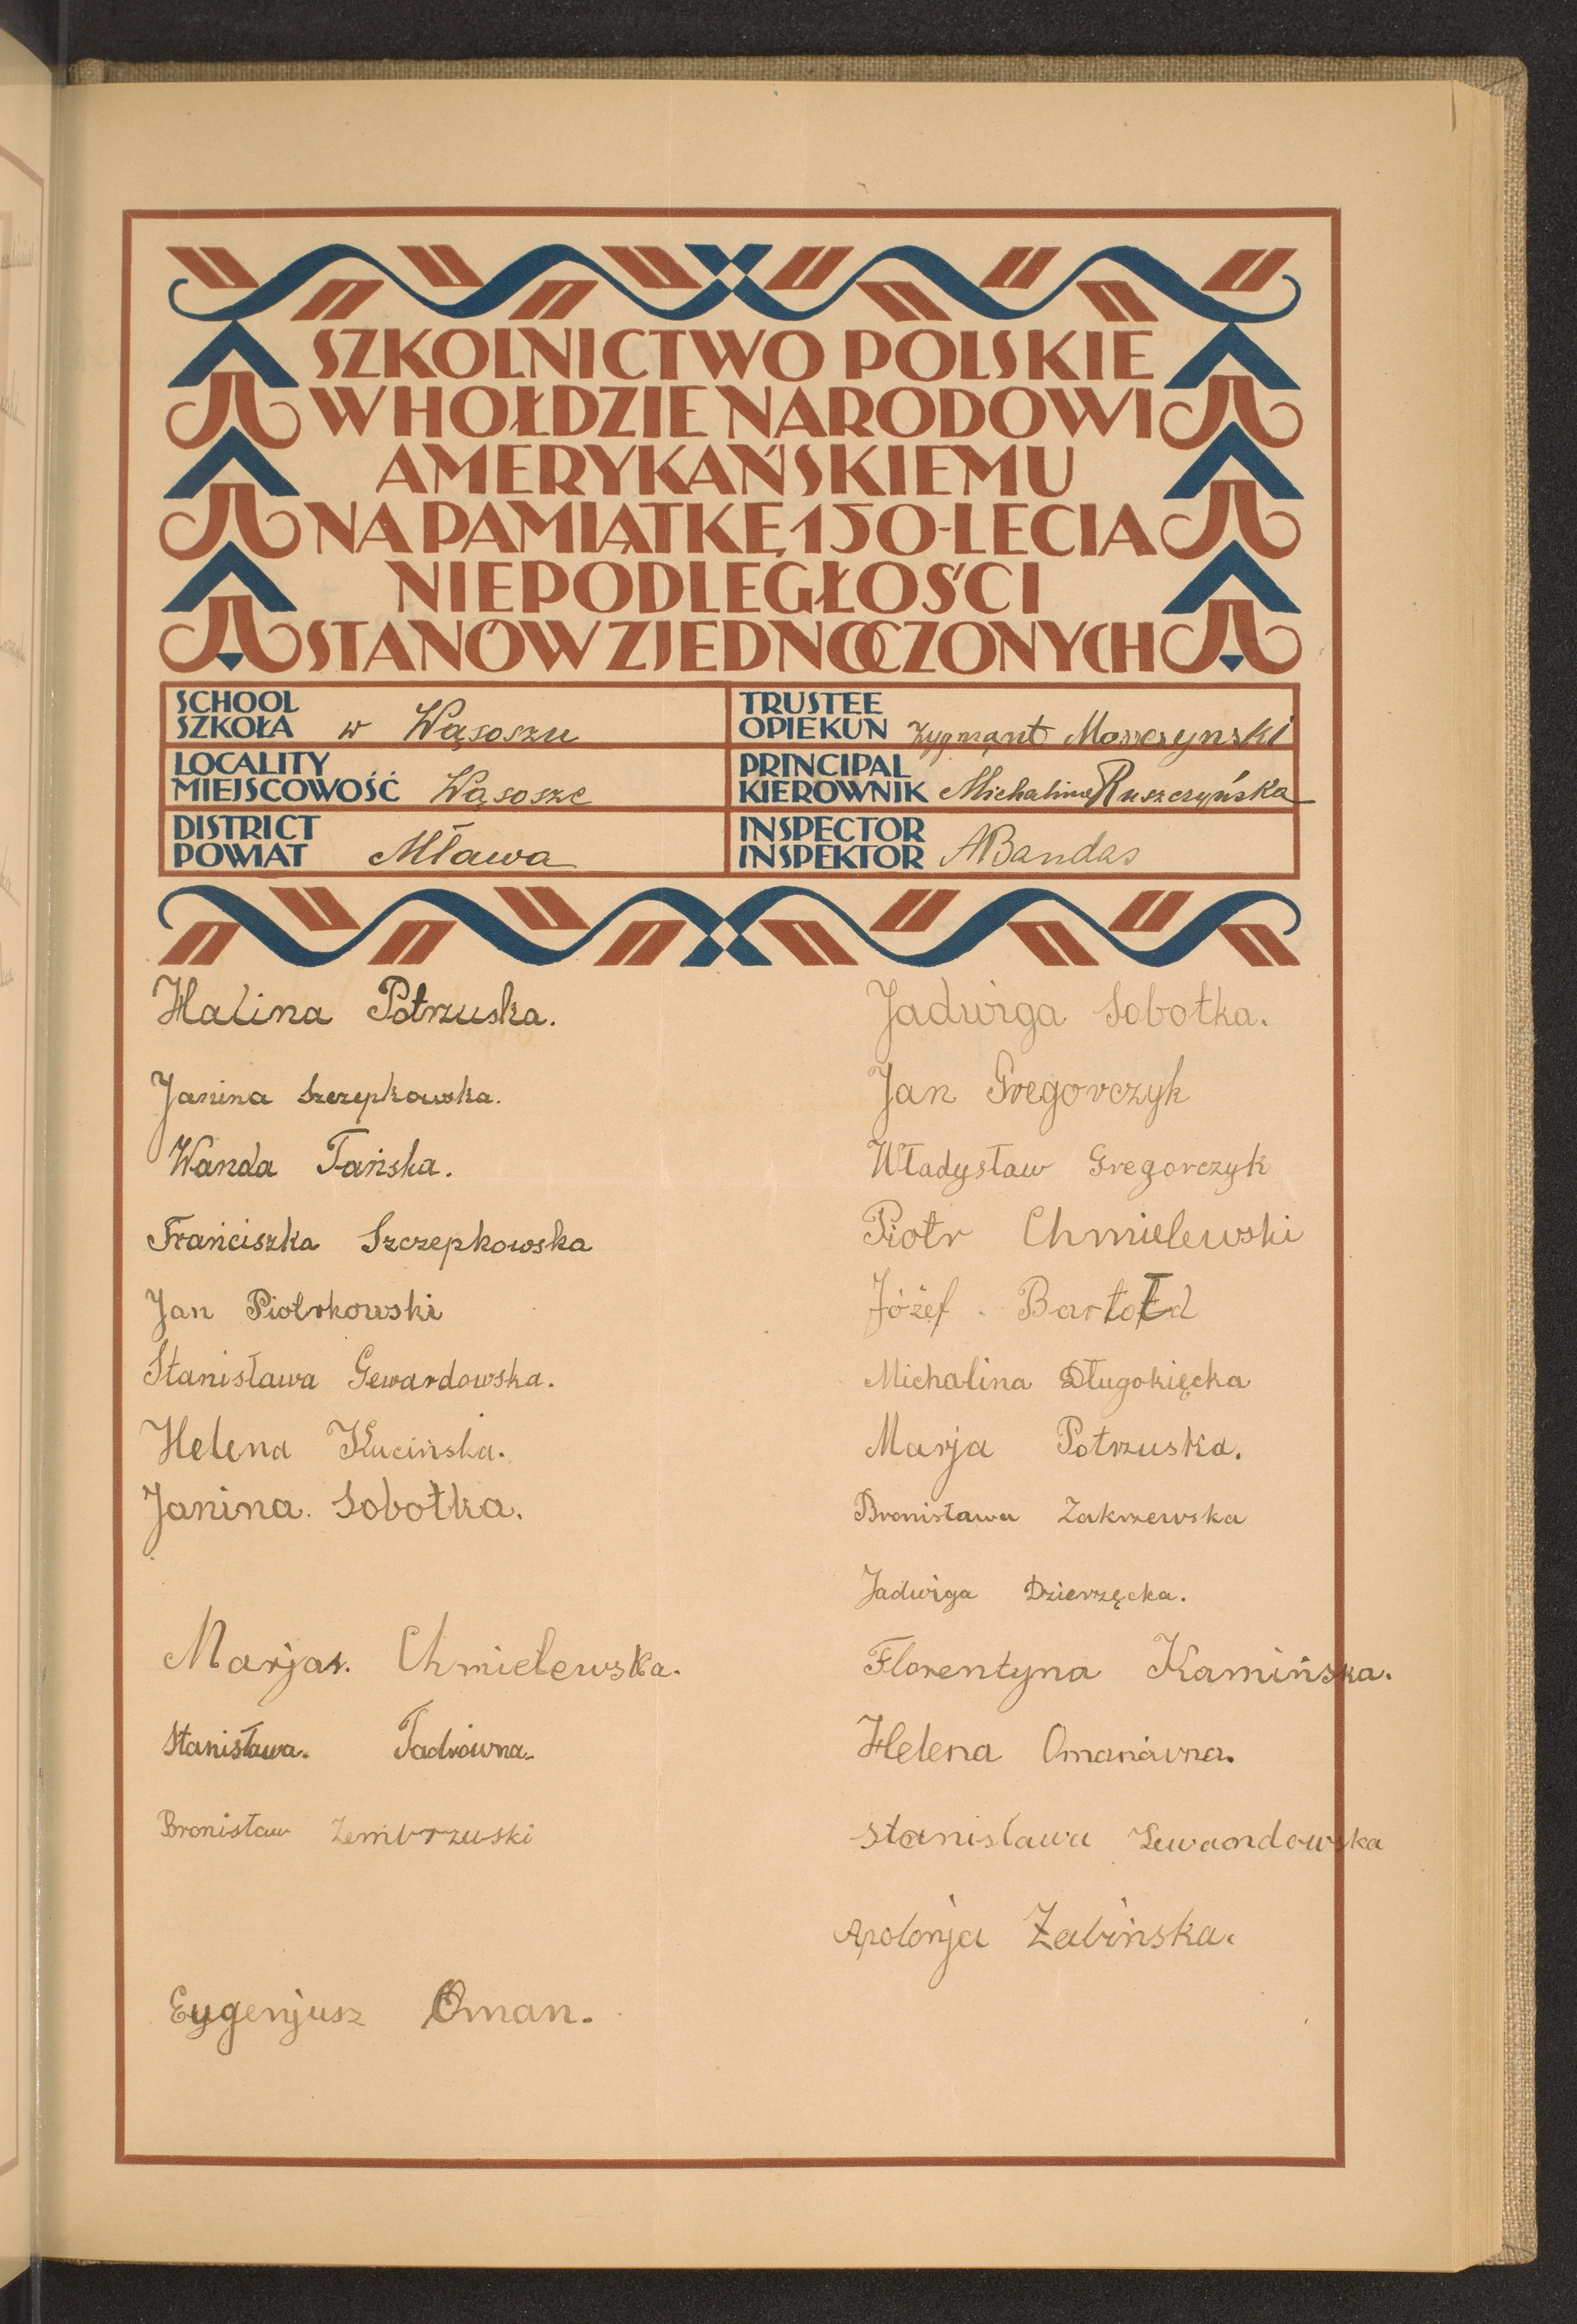 SZKOLNICTWO POLSKIE
W HOŁDZIE NARODOWI
AMERYKAŃSKIEMU
NA PAMIĄTKĘ 150-LECIA
NIEPODLEGŁOŚCI
STANÓW ZJEDNOCZONYCH
SCHOOL
SZKOŁA w Wąsoszu
TRUSTEE
OPIEKUN Zygmąnt
LOCALITY
MIEJSCOWOŚĆ Wąsosze
PRINCIPAL
KIEROWNIK Michalina Ruszczyńska
DISTRICT
POWIAT Mława
INSPECTOR
INSPEKTOR ABandas
Halina Potrzuska.
Janina Szczepkowska.
Wanda Tańska.
Franciszka Szczepkowska
Jan Piotrkowski
Stanisława Gewardowska.
Helena Kucińska.
Janina. Sobotka.
Marja. Chmielewska.
Stanisława. Tadrówna.
Bronisław Zembrzuski
Eugenjusz Oman.
Jadwiga Sobotka.
Jan Gregorczyk
Władysław Gregorczyk
Piotr Chmielewski
Józef. Bartołd
Michalina Długokięcka
Marja Potrzuska.
Bronisława Zakrzewska
Jadwiga Dzierzęcka.
Florentyna Kamińska.
Helena Omanówna.
Stanisława Lewaondowska
Apolonja Żabińska.